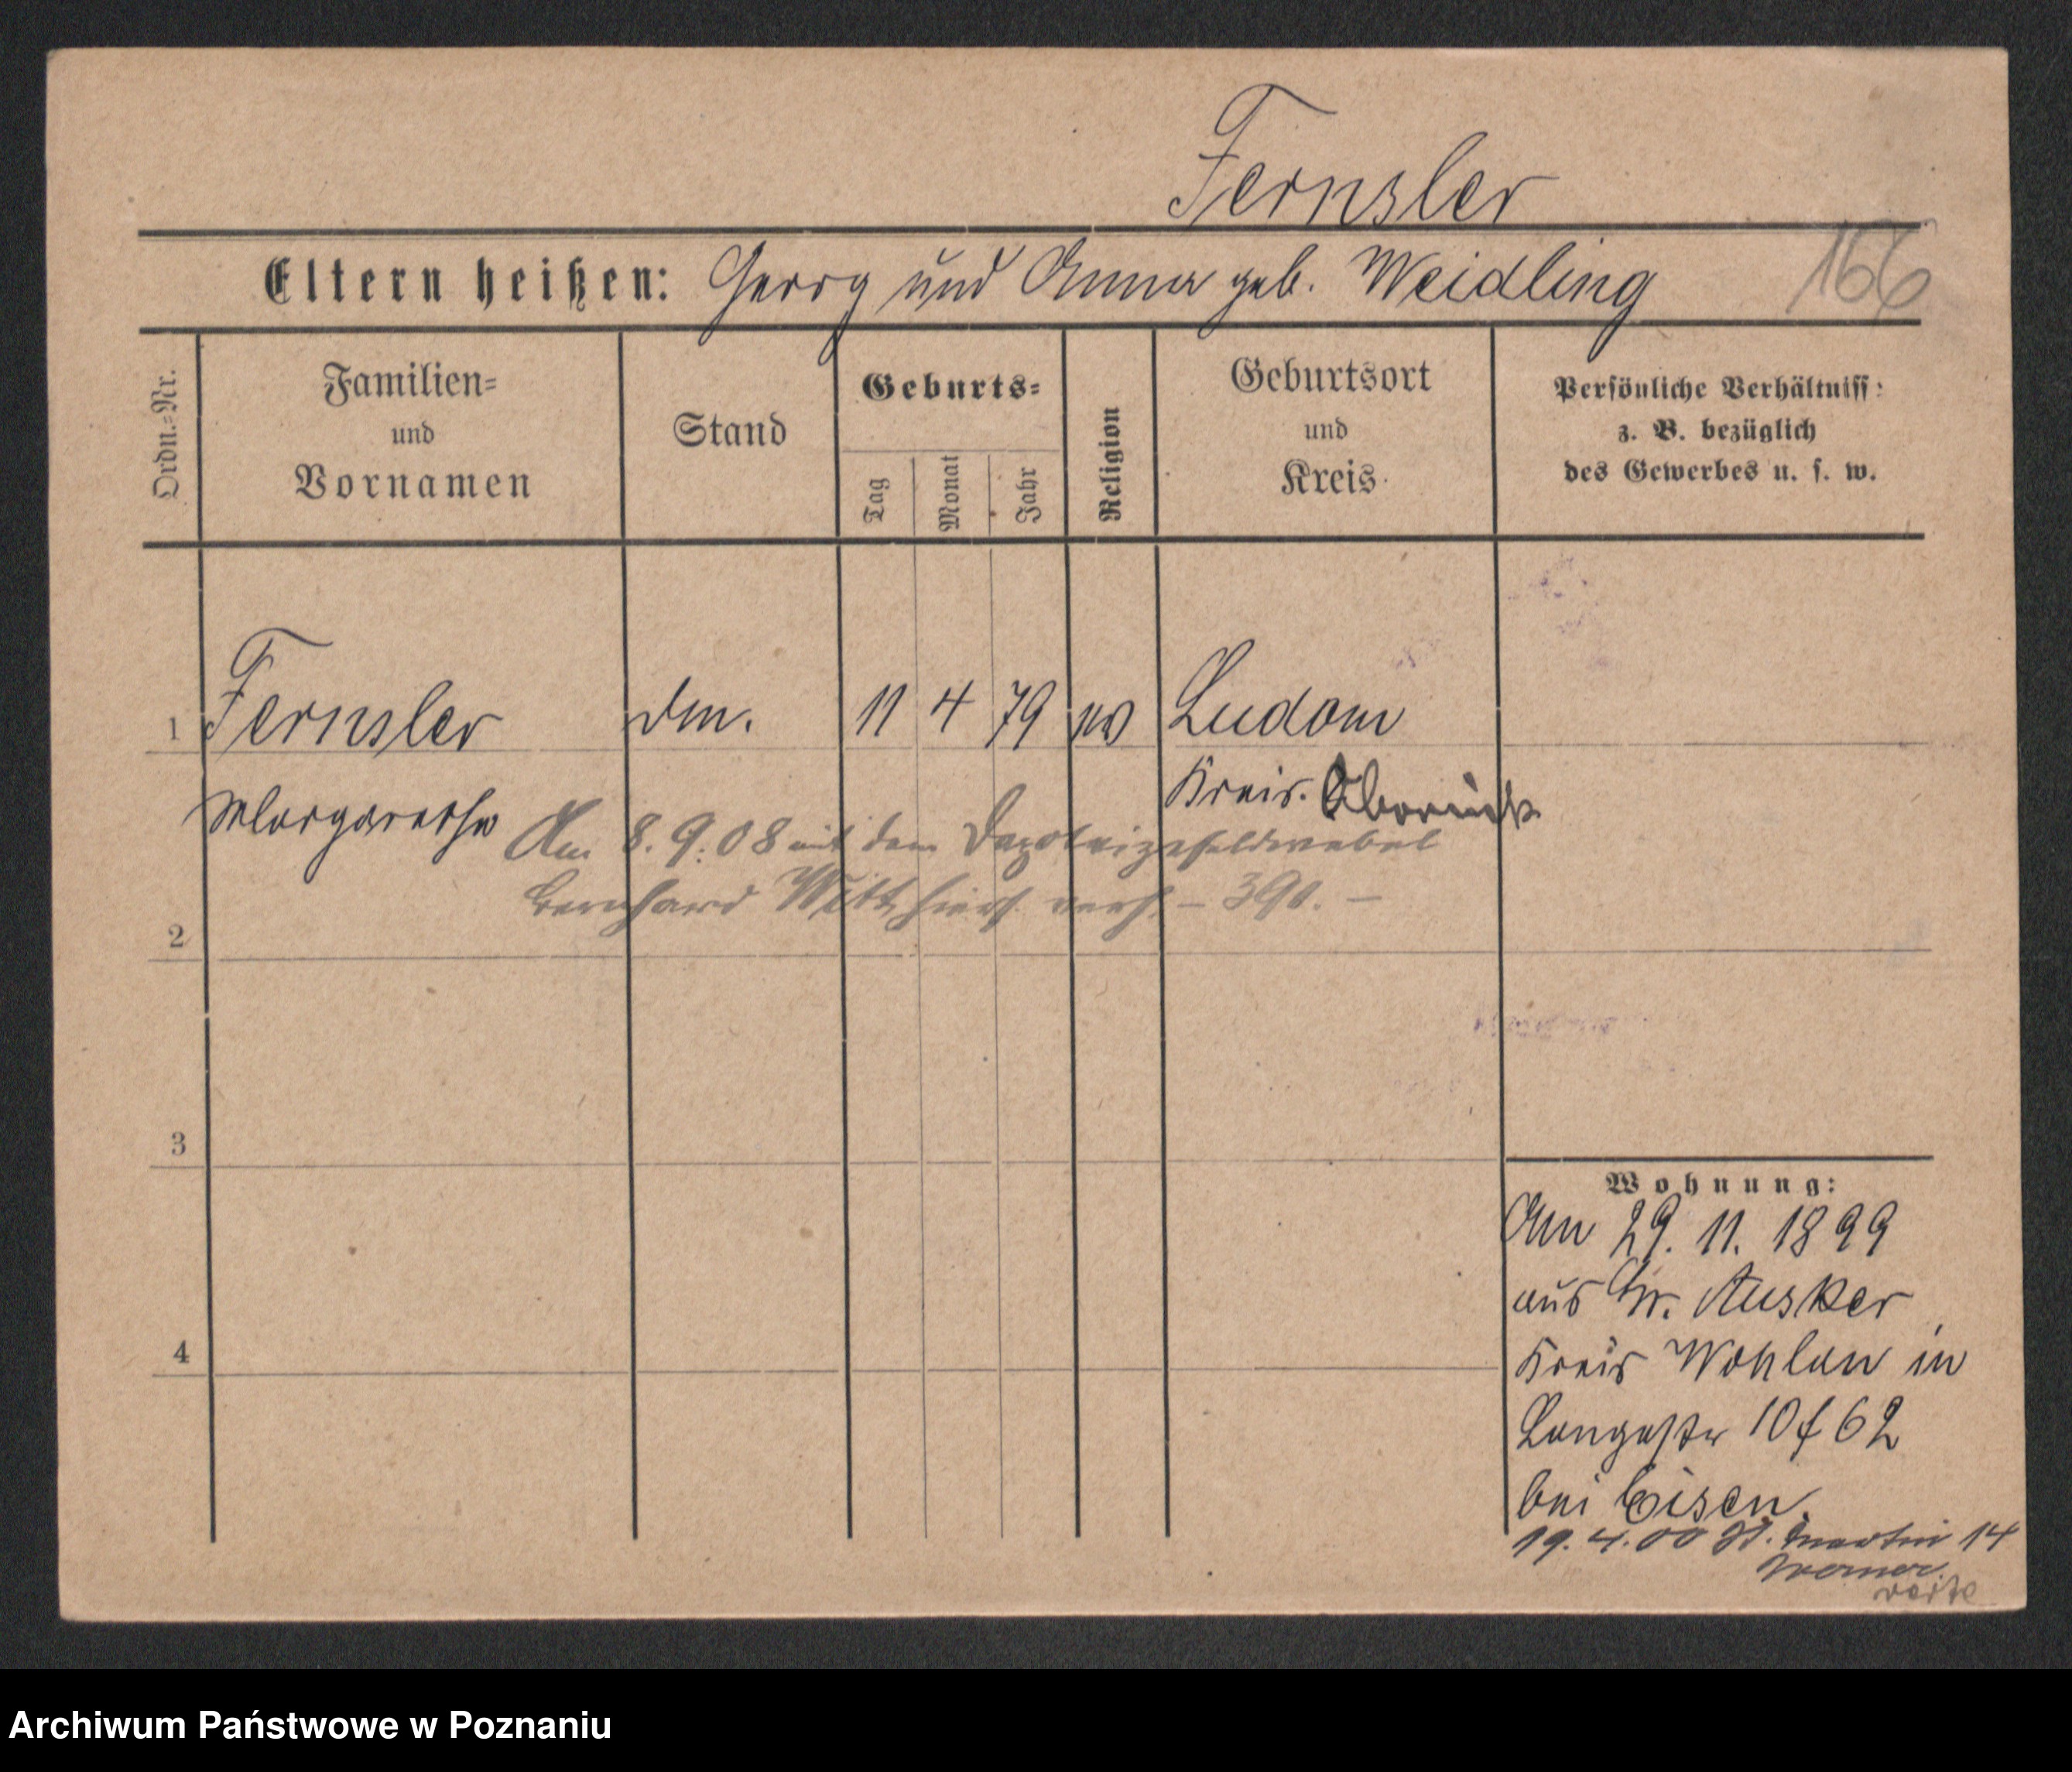 Fernsler
Eltern heißen: Georg und Anna geb. Weidling
166
Ordn.=Nr.
Familien=
und
Vornamen
Stand
Geburts=
Tag
Monat
Jahr
Religion
Geburtsort
und
Kreis
Persönliche Verhältniss:
z. B. bezüglich
des Gewerbes u. s. w.
1 Fernsler 11 4 79 Ludom
Margarethe
Kreis Obornick
Am 8.9.08 mit dem
Bernhard Witt verh. – 390. –
2
3
4
Wohnung:
Am 29. 11. 1899
aus Gr. Ausker
Kreis Wohlau in
Langestr 10 f 62
bei Eisen.
19. 4. 00 St. Martin 14
Archiwum Państwowe w Poznaniu